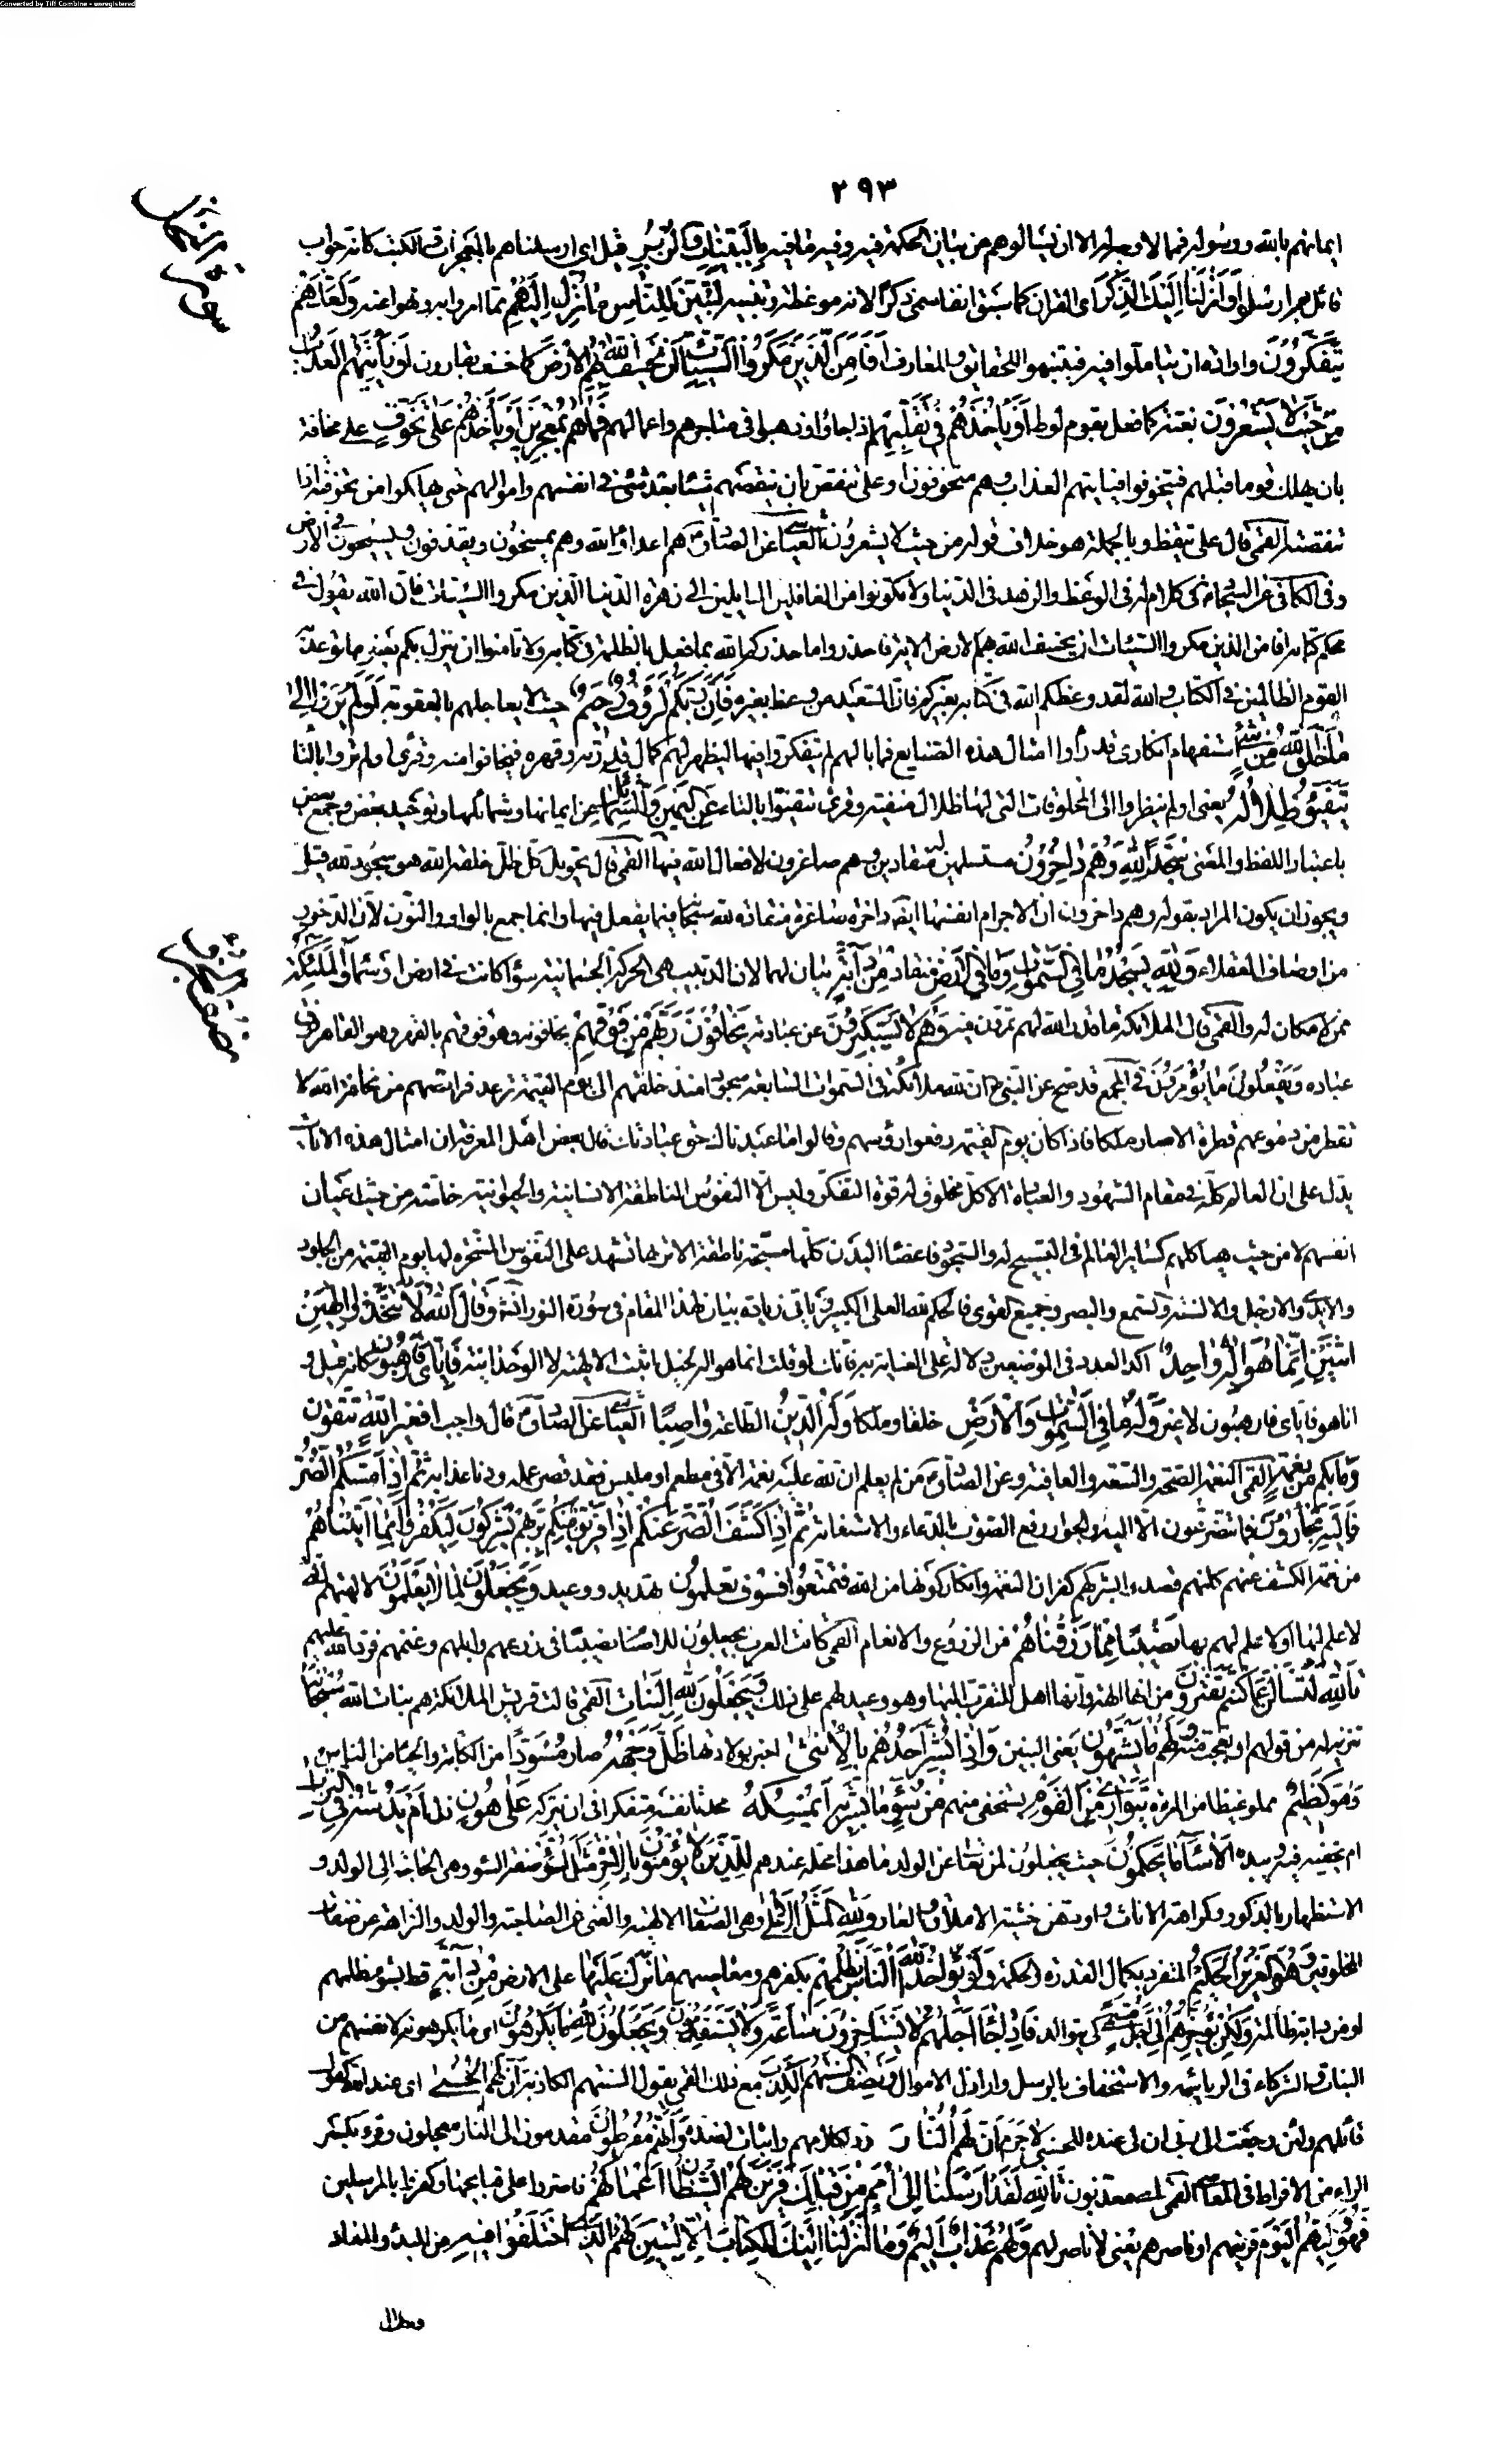 Converted by Tiff Combine - unregistered
٢٩٣
ايمانهم بالله ورسوله فيما لا وجه له الا ان يسألوهم من بيان الحكمة فيه وفيه ما فيه بِالْبَيِّنَاتِ وَالزُّبُرِ قيل اي ارسلناهم بالمعجزات والكتب كانه جواب
قائل بم ارسلوا وَاَنْزَلْنَا اِلَيْكَ الذِّكْرَ اى القرآن كما سبق انفا سمى ذكرا لانه موعظة وتنبيه لِتُبَيِّنَ لِلنَّاسِ مَا نُزِّلَ اِلَيْهِمْ مما امروا به ونهوا عنه وَلَعَلَّهُمْ
يَتَفَكَّرُونَ وارادة ان يتأملوا فيه فيتنبهوا للحقايق والمعارف اَفَاَمِنَ الَّذِينَ مَكَرُوا السَّيِّئَاتِ اَنْ يَخْسِفَ اللهُ بِهِمُ الْاَرْضَ كما خسف بقارون اَوْ يَأْتِيَهُمُ الْعَذَابُ
مِنْ حَيْثُ لَا يَشْعُرُونَ بغتة كما فعل بقوم لوط اَوْ يَأْخُذَهُمْ فِى تَقَلُّبِهِمْ اذ جاؤا وذهبوا فى متاجرهم واعمالهم فَمَا هُمْ بِمُعْجِزِينَ اَوْ يَأْخُذَهُمْ عَلَى تَخَوُّفٍ على مخافة
بان يهلك قوما قبلهم فيتخوفوا فياتيهم العذاب وهم متخوفون او على تنقص بان ينقصهم شيئا بعد شئ فى انفسهم واموالهم حتى يهلكوا من تخوفته اذا
تنقصته القمى قال على تيقظ وبالجملة هو خلاف قوله من حيث لا يشعرون العياشى عن الصادق هم اعداء الله وهم يمسخون ويقذفون ويسيحون فى الارض
وفى الكافى عن السجاد فى كلام له فى الوعظ والزهد فى الدنيا ولا تكونوا من الغافلين المايلين الى زهرة الدنيا الذين مكروا السيئات فان الله يقول فى
محكم كتابه افامن الذين مكروا السيئات ان يخسف الله بهم الارض الاية فاحذروا ما حذركم الله بما فعل بالظلمة فى كتابه ولا تامنوا ان ينزل بكم بعض ما توعد
القوم الظالمين فى الكتاب والله لقد وعظكم الله فى كتابه بغيركم فان السعيد من وعظ بغيره فَاِنَّ رَبَّكُمْ لَرَؤُفٌ رَحِيمٌ حيث لا يعاجلهم بالعقوبة اَوَلَمْ يَرَوْا اِلَى
مَا خَلَقَ اللهُ مِنْ شَىْءٍ استفهام انكارى قد رأوا امثال هذه الصنايع فما بالهم لم يتفكروا فيها ليظهر لهم كمال قدرته وقهره فيخافوا منه وقرئ اولم تروا بالتا
يَتَفَيَّؤُ ظِلَالُهُ يعنى اولم ينظروا الى المخلوقات التى لها ظلال متفيئة وقرئ تتفيؤا بالتاء عَنِ الْيَمِينِ وَالشَّمَائِلِ عن ايمانها وشمائلها وتوحيد بعض وجمع بعض
باعتبار اللفظ والمعنى سُجَّدًا لِلهِ وَهُمْ دَاخِرُونَ مستسلمين له منقادين وهم صاغرون لافعال الله فيها القمى قال تحويل كل ظل خلقه الله هو سجود لله قيل
ويجوز ان يكون المراد بقوله وهم داخرون ان الاجرام انفسها ايضا داخرة صاغرة منقادة لله سبحانه فيما يفعل فيها وانما جمع بالواو والنون لان الدخور
من اوصاف العقلاء وَلِلهِ يَسْجُدُ مَا فِى السَّمٰوَاتِ وَمَا فِى الْاَرْضِ ينقاد مِنْ دَابَّةٍ بيان لهما لان الدبيب هى الحركة الجسمانية سواء كانت فى ارض او سماء وَالْمَلٰئِكَةُ
ممن لا مكان له والقمى قال الملائكة ما قدر الله لهم يمرون فيه وَهُمْ لَا يَسْتَكْبِرُونَ عن عبادته يَخَافُونَ رَبَّهُمْ مِنْ فَوْقِهِمْ يخافونه وهو فوقهم بالقهر وهو القاهر فوق
عباده وَيَفْعَلُونَ مَا يُؤْمَرُونَ فى المجمع قد صح عن النبى ان لله ملائكة فى السموات السابعة سجودا منذ خلقهم الى يوم القيمة ترعد فرائصهم من مخافة الله لا
تقطر من دموعهم قطرة الا صار ملكا فاذا كان يوم القيمة رفعوا رؤسهم وقالوا ما عبدناك حق عبادتك قال بعض اهل المعرفة ان امثال هذه الايات
يدل على ان العالم كله فى مقام الشهود والعبادة الا كل مخلوق له قوة التفكر وليس الا النفوس الناطقة الانسانية والحيوانية خاصة من حيث اعيان
انفسهم لا من حيث هياكلهم فان هياكلهم كساير العالم فى التسبيح له والسجود فاعضاء البدن كلها مسبحة ناطقة الا تراها تشهد على النفوس المسخرة لها يوم القيمة من الجلود
والايدى والارجل والالسنة والسمع والبصر وجميع القوى فالحكم لله العلى الكبير وياتى زيادة بيان لهذا المقام فى سورة النور انشاء الله وَقَالَ اللهُ لَا تَتَّخِذُوا اِلٰهَيْنِ
اثْنَيْنِ اِنَّمَا هُوَ اِلٰهٌ وَاحِدٌ اكد العدد فى الموضعين دلالة على العناية به فانك لو قلت انما هو اله لخيل انك اثبت الالهية لا الوحدانية فَاِيَّاىَ فَارْهَبُونِ كانه قيل و
انا هو فاياى فارهبون لا غير وَلَهُ مَا فِى السَّمٰوَاتِ وَالْاَرْضِ خلقا وملكا وَلَهُ الدِّينُ الطاعة وَاصِبًا العياشى عن الصادق قال واجبا اَفَغَيْرَ اللهِ تَتَّقُونَ
وَمَا بِكُمْ مِنْ نِعْمَةٍ القمى النعمة الصحة والسعة والعافية وعن الصادق من لم يعلم ان لله عليه نعمة الا فى مطعم او ملبس فقد قصر عمله ودنا عذابه ثُمَّ اِذَا مَسَّكُمُ الضُّرُّ
فَاِلَيْهِ تَجْأَرُونَ فما تتضرعون الا اليه والجؤار رفع الصوت بالدعاء والاستغاثة ثُمَّ اِذَا كَشَفَ الضُّرَّ عَنْكُمْ اِذَا فَرِيقٌ مِنْكُمْ بِرَبِّهِمْ يُشْرِكُونَ لِيَكْفُرُوا بِمَا اٰتَيْنَاهُمْ
من نعمة الكشف عنهم كانهم قصدوا بشركهم كفران النعمة وانكار كونها من الله فَتَمَتَّعُوا فَسَوْفَ تَعْلَمُونَ تهديد ووعيد وَيَجْعَلُونَ لِمَا لَا يَعْلَمُونَ لالهتهم التى
لا علم لها او لا علم لهم بها نَصِيبًا مِمَّا رَزَقْنَاهُمْ من الزروع والانعام القمى كانت العرب يجعلون للاصنام نصيبا فى زرعهم وابلهم وغنمهم فرد الله عليهم
تَاللهِ لَتُسْأَلُنَّ عَمَّا كُنْتُمْ تَفْتَرُونَ من انها الهة وانها اهل للتقرب اليها وهو وعيد لهم على ذلك وَيَجْعَلُونَ لِلهِ الْبَنَاتِ القمى قالت قريش الملائكة هم بنات الله سُبْحَانَهُ
تنزيه له من قولهم او تعجب منه وَلَهُمْ مَا يَشْتَهُونَ يعنى البنين وَاِذَا بُشِّرَ اَحَدُهُمْ بِالْاُنْثٰى اخبر بولادتها ظَلَّ وَجْهُهُ صار مُسْوَدًّا من الكابة والحيا من الناس
وَهُوَ كَظِيمٌ مملو غيظا من المرءة يَتَوَارٰى مِنَ الْقَوْمِ يستخفى منهم مِنْ سُوءِ مَا بُشِّرَ بِهِ اَيُمْسِكُهُ محدثا نفسه متفكرا فى ان يتركه عَلٰى هُونٍ ذل اَمْ يَدُسُّهُ فِى التُّرَابِ
ام يخفيه فيه ويئده اَلَا سَاءَ مَا يَحْكُمُونَ حيث يجعلون لمن تعالى عن الولد ما هذا محله عندهم لِلَّذِينَ لَا يُؤْمِنُونَ بِالْاٰخِرَةِ مَثَلُ السَّوْءِ صفة السوء وهى الحاجة الى الولد و
الاستظهار بالذكور وكراهة الاناث ووادهن خشية الاملاق والعار وَلِلهِ الْمَثَلُ الْاَعْلٰى وهى الصفات الالهية والغنى عن الصاحبة والولد والنزاهة عن صفات
المخلوقين وَهُوَ الْعَزِيزُ الْحَكِيمُ المتفرد بكمال القدرة والحكمة وَلَوْ يُؤَاخِذُ اللهُ النَّاسَ بِظُلْمِهِمْ بكفرهم ومعاصيهم مَا تَرَكَ عَلَيْهَا على الارض مِنْ دَابَّةٍ قط بشؤم ظلمهم
او من دابة ظالمة وَلٰكِنْ يُؤَخِّرُهُمْ اِلٰى اَجَلٍ مُسَمًّى كى يتوالدوا فَاِذَا جَاءَ اَجَلُهُمْ لَا يَسْتَأْخِرُونَ سَاعَةً وَلَا يَسْتَقْدِمُونَ وَيَجْعَلُونَ لِلهِ مَا يَكْرَهُونَ اى ما يكرهونه لانفسهم من
البنات والشركاء فى الرياسة والاستخفاف بالرسل واراذل الاموال وَتَصِفُ اَلْسِنَتُهُمُ الْكَذِبَ مع ذلك القمى يقول السنتهم الكاذبة اَنَّ لَهُمُ الْحُسْنٰى اى عند الله كقول
قائلهم ولئن رجعت الى ربى ان لى عنده للحسنى لَا جَرَمَ اَنَّ لَهُمُ النَّارَ رد لكلامهم واثبات لضده وَاَنَّهُمْ مُفْرَطُونَ مقدمون الى النار معجلون وقرء بكسر
الراء من الافراط فى المعاصى القمى اى معذبون تَاللهِ لَقَدْ اَرْسَلْنَا اِلٰى اُمَمٍ مِنْ قَبْلِكَ فَزَيَّنَ لَهُمُ الشَّيْطَانُ اَعْمَالَهُمْ فاصروا على قبايحها وكفروا بالمرسلين
فَهُوَ وَلِيُّهُمُ الْيَوْمَ قرينهم او ناصرهم يعنى لا ناصر لهم وَلَهُمْ عَذَابٌ اَلِيمٌ وَمَا اَنْزَلْنَا اِلَيْكَ الْكِتَابَ اِلَّا لِتُبَيِّنَ لَهُمُ الَّذِى اخْتَلَفُوا فِيهِ من المبدء والمعاد